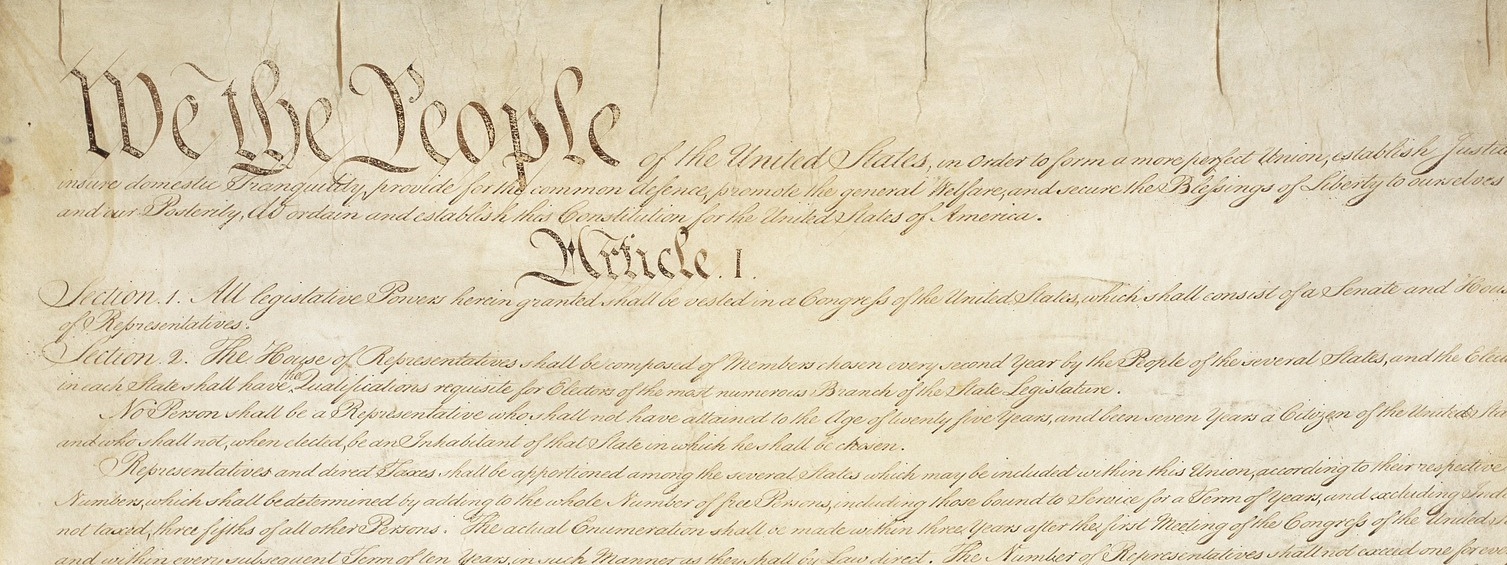 We the People of the United States, in Order to form a more perfect Union, establish Justi
insure domestic Tranquility, provide for the common defence, promote the general Welfare, and secure the Blessings of Liberty to ourselves
and our Posterity, do ordain and establish this Constitution for the United States of America.
Article. I.
Section. 1. All legislative Powers herein granted shall be vested in a Congress of the United States, which shall consist of a Senate and Hous
of Representatives.
Section. 2. The House of Representatives shall be composed of Members chosen every second Year by the People of the several States, and the Elect
in each State shall have the Qualifications requisite for Electors of the most numerous Branch of the State Legislature.
No Person shall be a Representative who shall not have attained to the Age of twenty five Years, and been seven Years a Citizen of the United Sta
and who shall not, when elected, be an Inhabitant of that State in which he shall be chosen.
Representatives and direct Taxes shall be apportioned among the several States which may be included within this Union, according to their respective
Numbers, which shall be determined by adding to the whole Number of free Persons, including those bound to Service for a Term of Years, and excluding Indi
not taxed, three fifths of all other Persons. The actual Enumeration shall be made within three Years after the first Meeting of the Congress of the United
and within every subsequent Term of ten Years, in such Manner as they shall by Law direct. The Number of Representatives shall not exceed one for eve